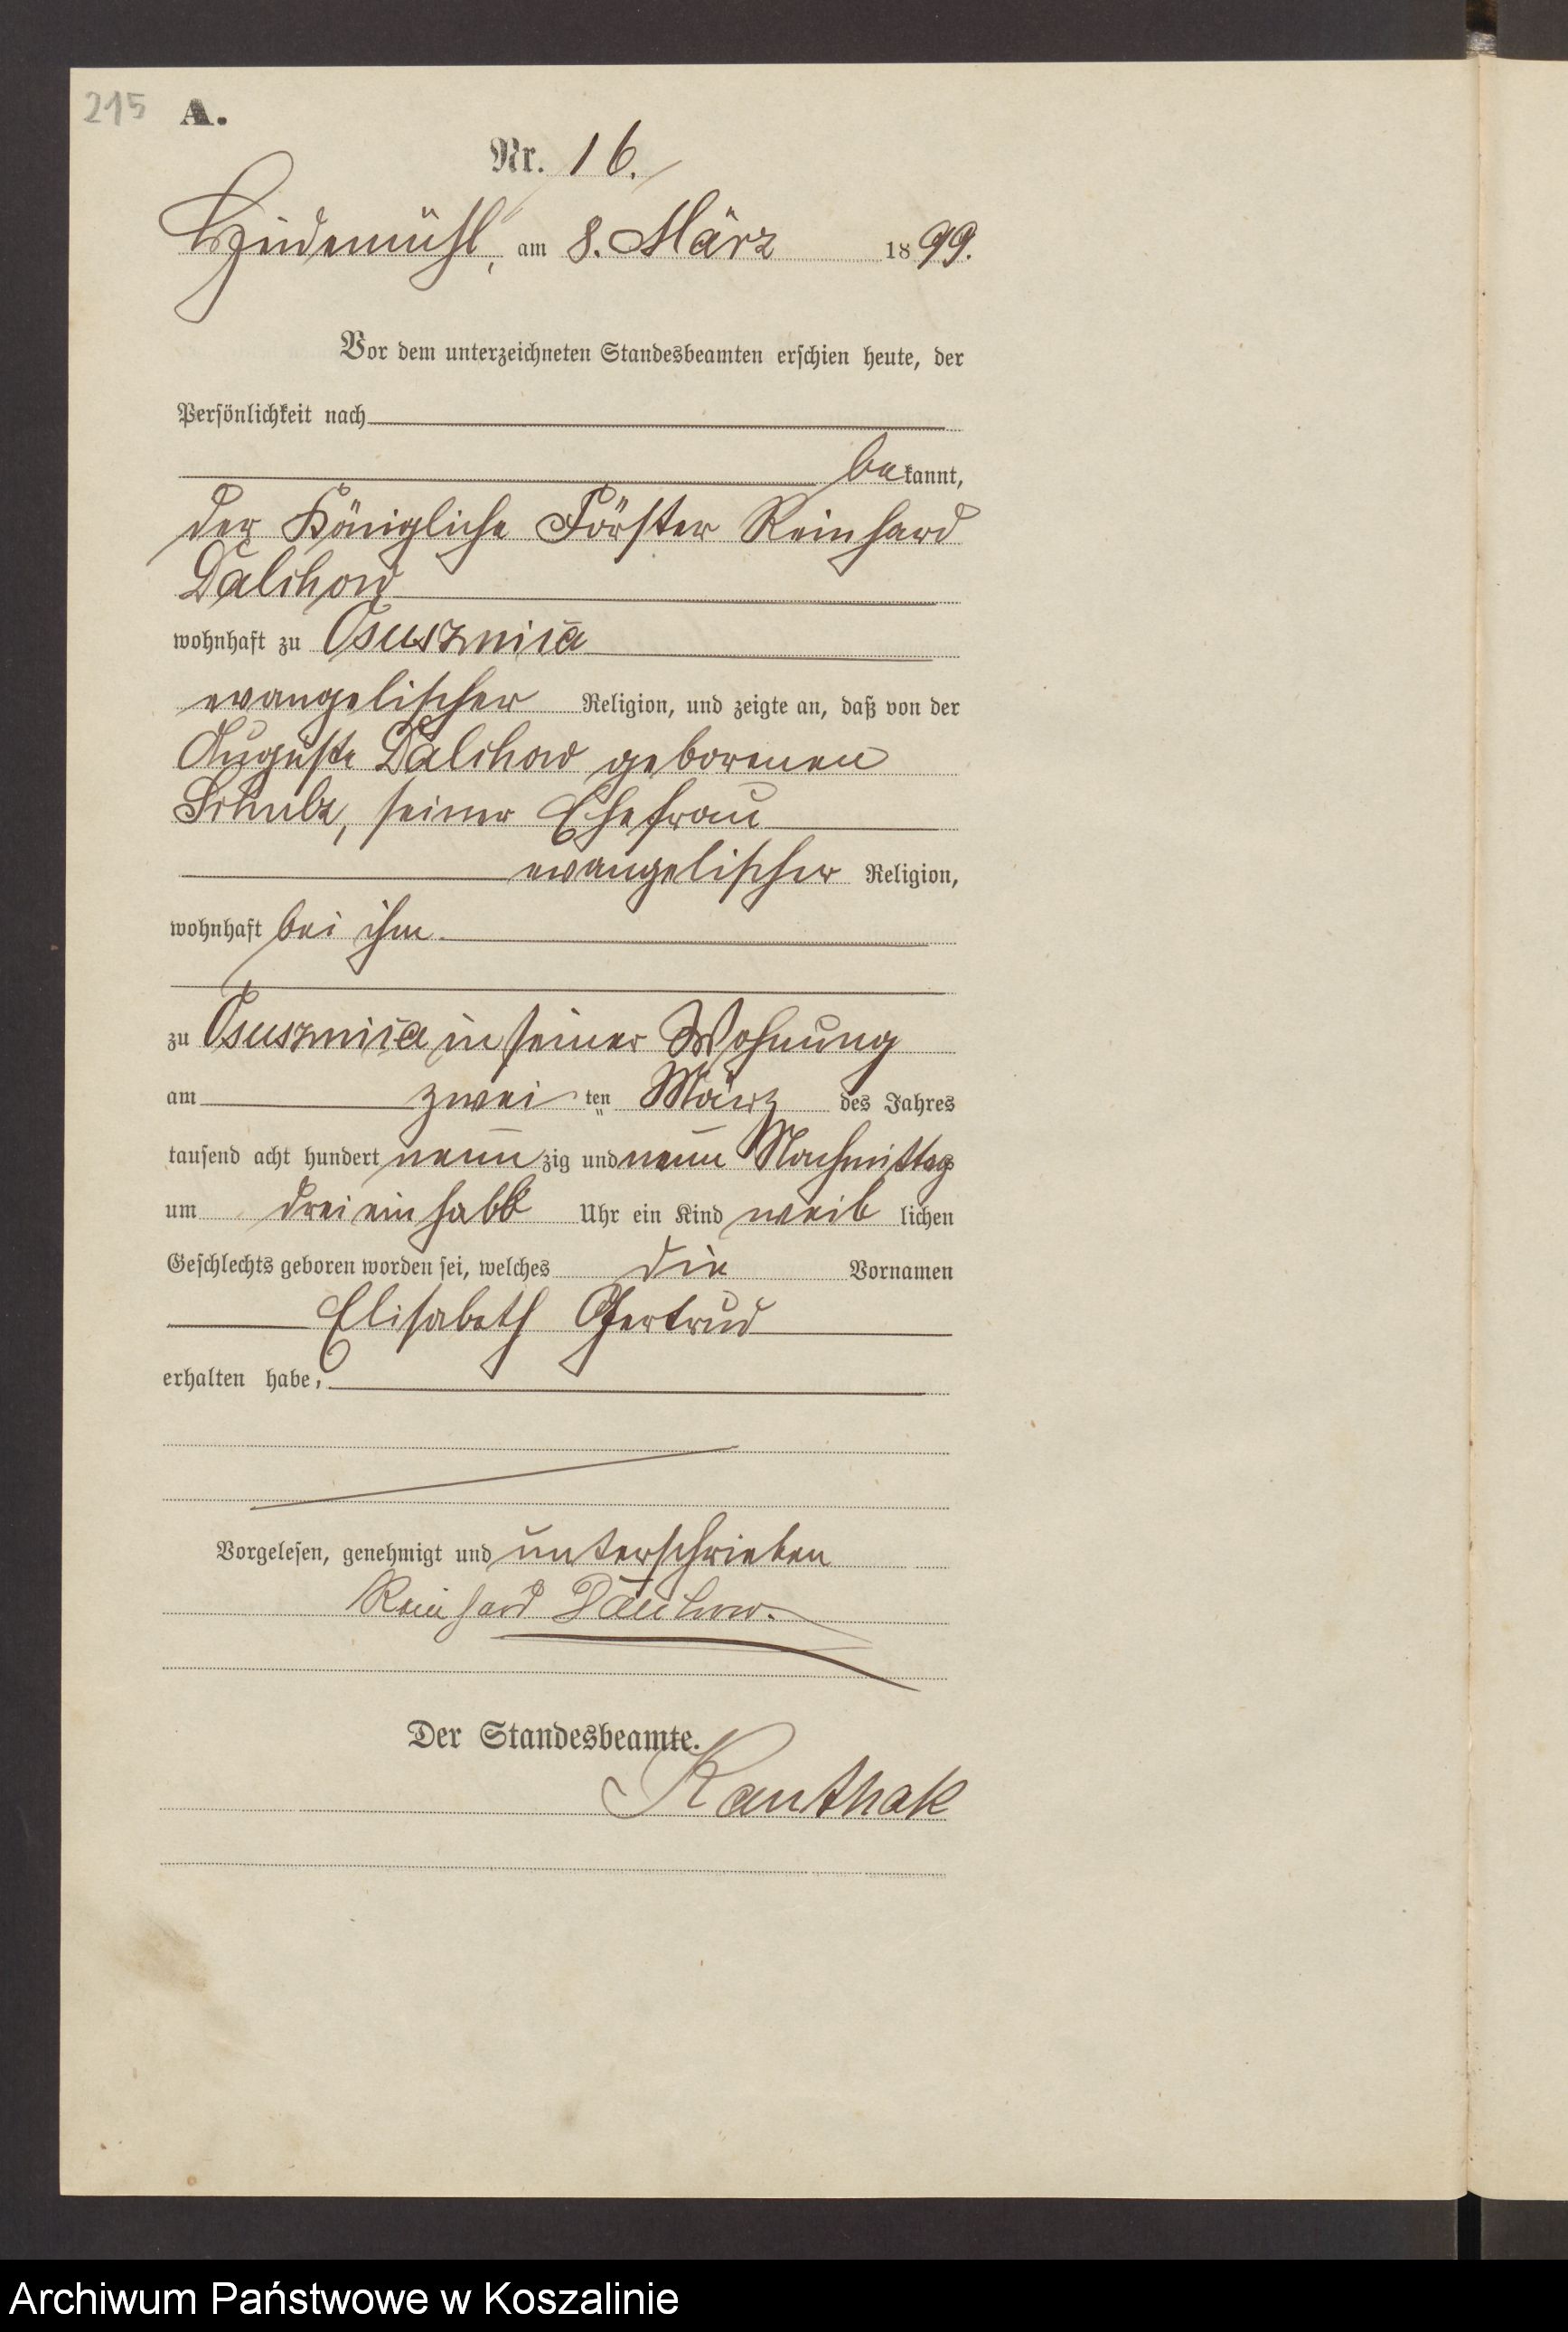 215 A.
Nr. 16.
am 8. März 1899.
Vor dem unterzeichneten Standesbeamten erschien heute, der
Persönlichkeit nach
bekannt,
der Königliche Förster Reinhard
Dalchow
wohnhaft zu Osusznica
evangelischer Religion, und zeigte an, daß von der
Auguste Dalchow geborenen
Schulz, seiner Ehefrau
evangelischer Religion,
wohnhaft bei ihm
zu Osusznica in seiner Wohnung
am zweiten März des Jahres
tausend acht hundert neunzig und neun Nachmittags
um drei ein halb Uhr ein Kind weiblichen
Geschlechts geboren worden sei, welches die Vornamen
Elisabeth Gertrud
erhalten habe,
Vorgelesen, genehmigt und unterschrieben
Reinhard Dalchow.
Der Standesbeamte.
Kanthak
Archiwum Państwowe w Koszalinie